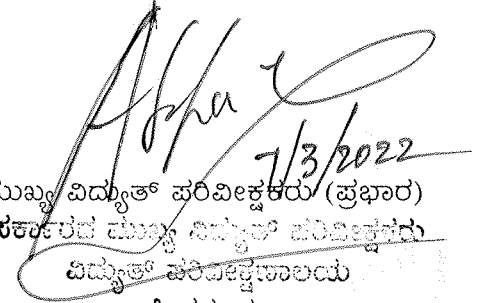 7/3/2022
ಮುಖ್ಯ ವಿದ್ಯುತ್ ಪರಿವೀಕ್ಷಕರು (ಪ್ರಭಾರ)
ಸರ್ಕಾರದ ಮುಖ್ಯ ವಿದ್ಯುತ್ ಪರಿವೀಕ್ಷಕರು
ವಿದ್ಯುತ್ ಪರಿವೀಕ್ಷಣಾಲಯ